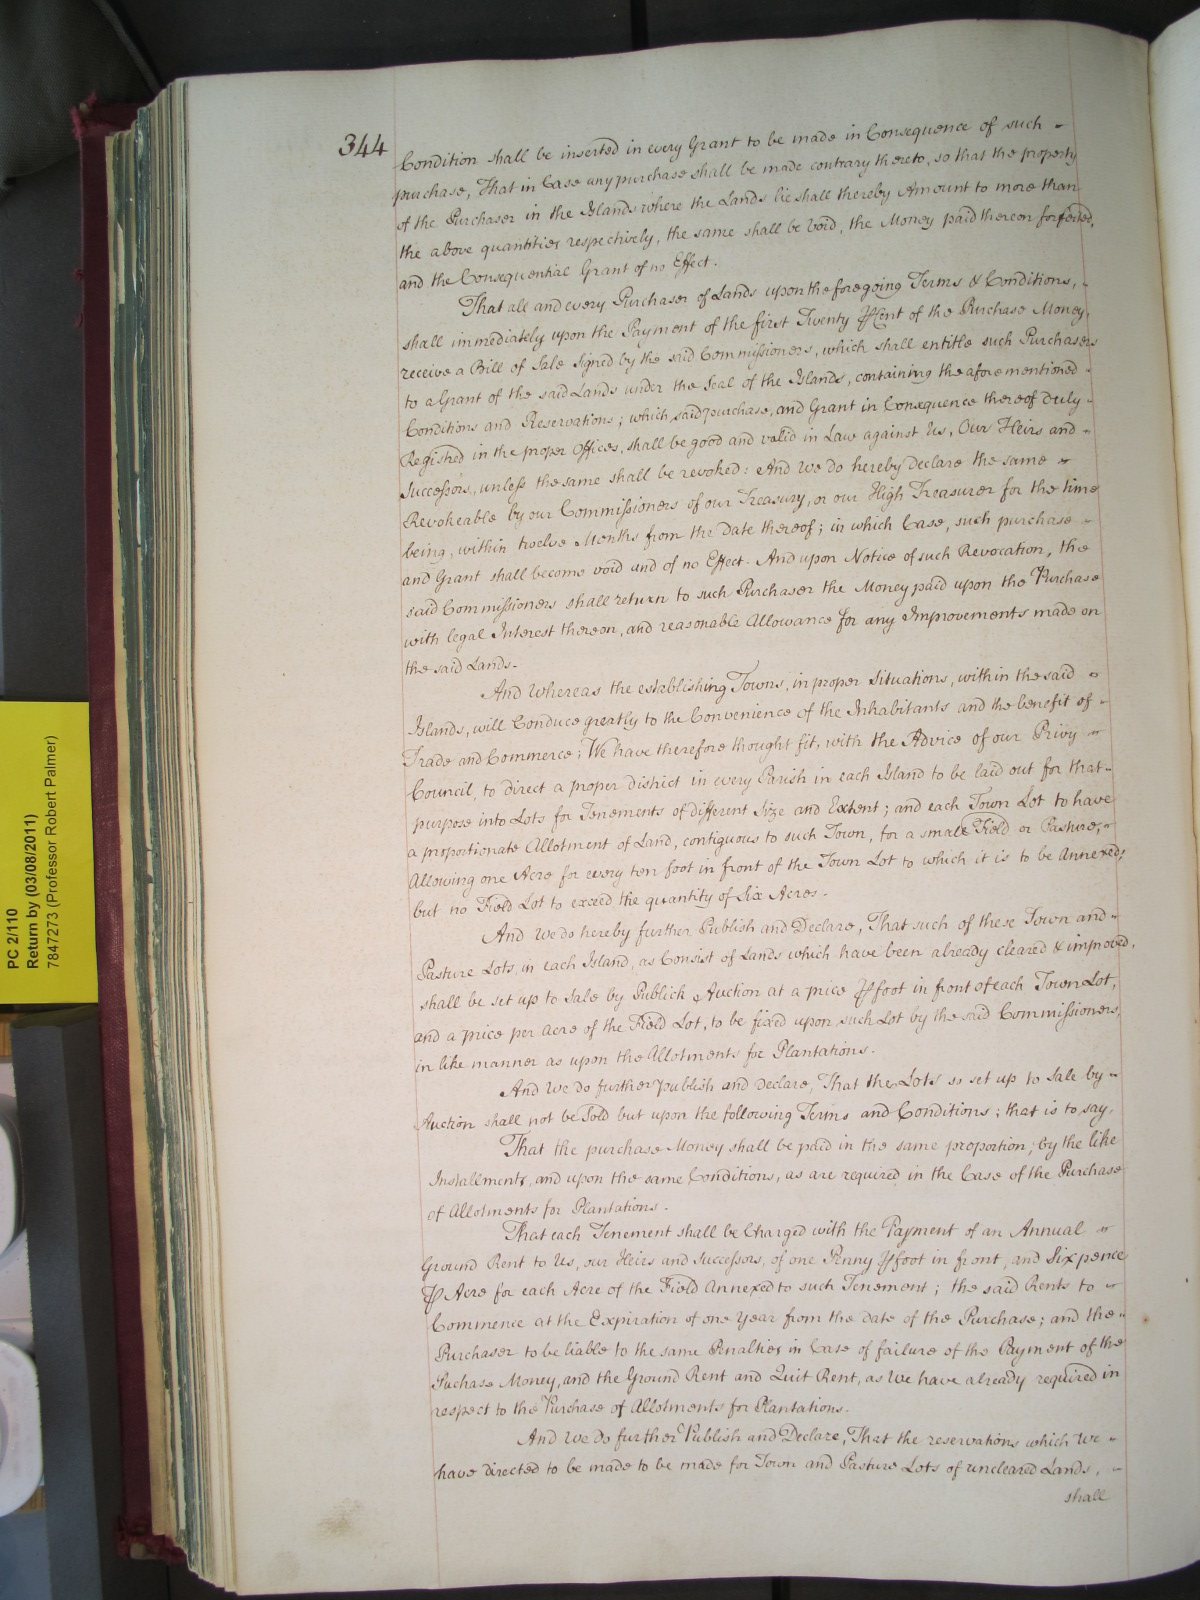 344
Condition shall be inserted in every Grant to be made in Consequence of such
purchase, That in Case any purchase shall be made contrary thereto, so that the property
of the Purchaser in the Islands where the Lands lie shall thereby Amount to more than
the above quantities respectively, the same shall be Void, the Money paid thereon forfeited,
and the Consequential Grant of no Effect.
That all and every Purchaser of Lands upon the foregoing Terms & Conditions,
shall immediately upon the Payment of the first Twenty ⅌ Cent of the Purchase Money,
receive a Bill of Sale Signed by the said Commissioners, which shall entitle such Purchasers
to a Grant of the said Lands under the Seal of the Islands, containing the aforementioned
Conditions and Reservations; which said purchase, and Grant in Consequence thereof Duly
Registred in the proper Offices, shall be good and valid in Law against Us, Our Heirs and
Successors, unless the same shall be revoked: And we do hereby Declare the same
Revokeable by our Commissioners of our Treasury, or our High Treasurer for the time
being, within twelve Months from the Date thereof; in which Case, such purchase
and Grant shall become void and of no Effect. And upon Notice of such Revocation, the
said Commissioners shall return to such Purchaser the Money paid upon the Purchase
with legal Interest thereon, and reasonable Allowance for any Improvements made on
the said Lands.
And Whereas the establishing Towns, in proper Situations, within the said
Islands, will Conduce greatly to the Convenience of the Inhabitants and the benefit of
Trade and Commerce; We have therefore thought fit, with the Advice of our Privy
Council, to direct a proper district in every Parish in each Island to be laid out for that
purpose into Lots for Tenements of different Size and Extent; and each Town Lot to have
a proportionate Allotment of Land, contiguous to such Town, for a small Field or Pasture,
Allowing one Acre for every ten foot in front of the Town Lot to which it is to be Annexed;
but no Field Lot to exceed the quantity of Six Acres.
And we do hereby further Publish and Declare, That such of these Town and
Pasture Lots, in each Island, as Consist of Lands which have been already cleared & improved,
shall be set up to Sale by Publick Auction at a price ⅌ foot in front of each Town Lot,
and a price per Acre of the Field Lot, to be fixed upon such Lot by the said Commissioners,
in like manner as upon the Allotments for Plantations.
And we do further publish and declare, That the Lots so set up to Sale by
Auction shall not be Sold but upon the following Terms and Conditions; that is to say,
That the purchase Money shall be paid in the same proportion, by the like
Installments, and upon the same Conditions, as are required in the Case of the Purchase
of Allotments for Plantations.
That each Tenement shall be Charged with the Payment of an Annual
Ground Rent to Us, our Heirs and Successors, of one Penny ⅌ foot in front, and Sixpence
⅌ Acre for each Acre of the Field Annexed to such Tenement; the said Rents to
Commence at the Expiration of one Year from the Date of the Purchase; and the
Purchaser to be liable to the same Penalties in Case of failure of the Payment of the
Puchase Money, and the Ground Rent and Quit Rent, as We have already required in
respect to the Purchase of Allotments for Plantations.
And We do further Publish and Declare, That the reservations which we
have directed to be made to be made for Town and Pasture Lots of uncleared Lands,
shall
PC 2/110
Return by (03/08/2011)
7847273 (Professor Robert Palmer)